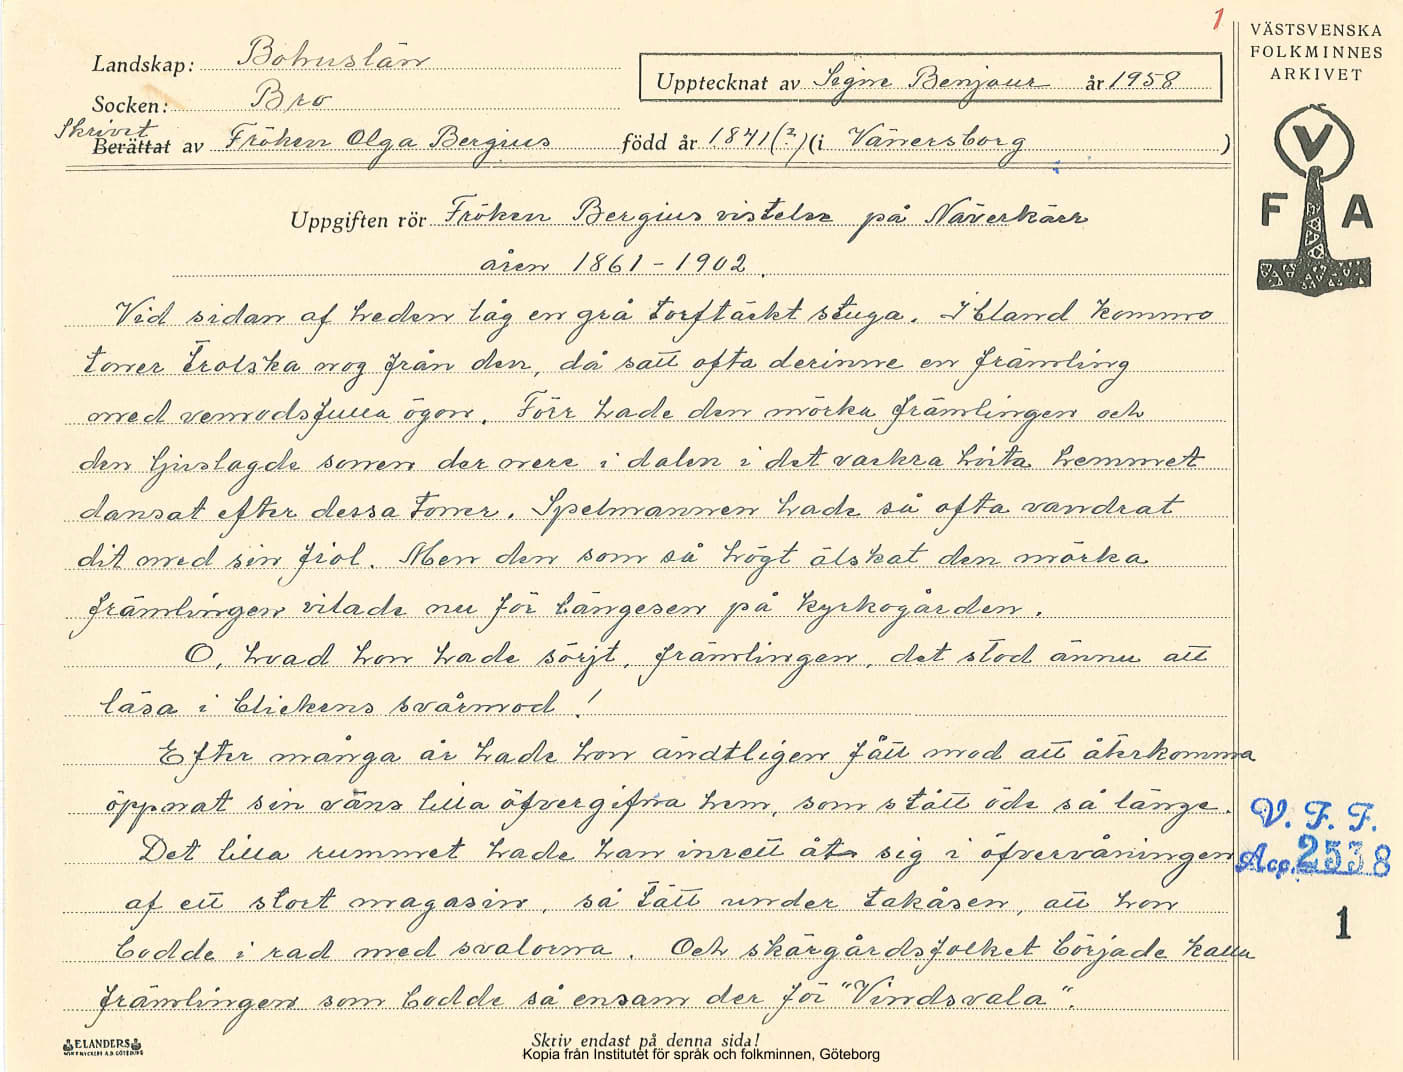 1
VÄSTSVENSKA
FOLKMINNES
ARKIVET
Landskap: Bohuslän
Upptecknat av Segne Benjour år 1958
Socken: Bro
Skrivit
Berättat av Fröken Olga Bergius född år 1841(?) (i Vänersborg )
V
F A
Uppgiften rör Fröken Bergius vistelse på Näverkärr
åren 1861-1902.
Vid sidan af heden låg en grå torftäckt stuga. Ibland kommo
toner trolska nog från den, då satt ofta derinne en främling
med vemodsfulla ögon. Förr hade den mörka främlingen och
den ljuslagde sonen der nere i dalen i det vackra hvita hemmet
dansat efter dessa toner. Spelmannen hade så ofta vandrat
dit med sin fiol. Men den som så högt älskat den mörka
främlingen vilade nu för längesen på kyrkogården.
O, hvad hon hade sörjt, främlingen, det stod ännu att
läsa i blickens svårmod!
Efter många år hade hon ändtligen fått mod att återkomma
öppnat sin väns lilla öfvergifna hem, som stått öde så länge.
Det lilla rummet hade han inrett åt sig i öfvervåningen
af ett stort magasin, så tätt under takåsen, att hon
bodde i rad med svalorna. Och skärgårdsfolket började kalla
främlingen som bodde så ensam der för "Vindsvala".
V. F. F.
Acc. 2538
1
ELANDERS
Skriv endast på denna sida!
Kopia från Institutet för språk och folkminnen, Göteborg